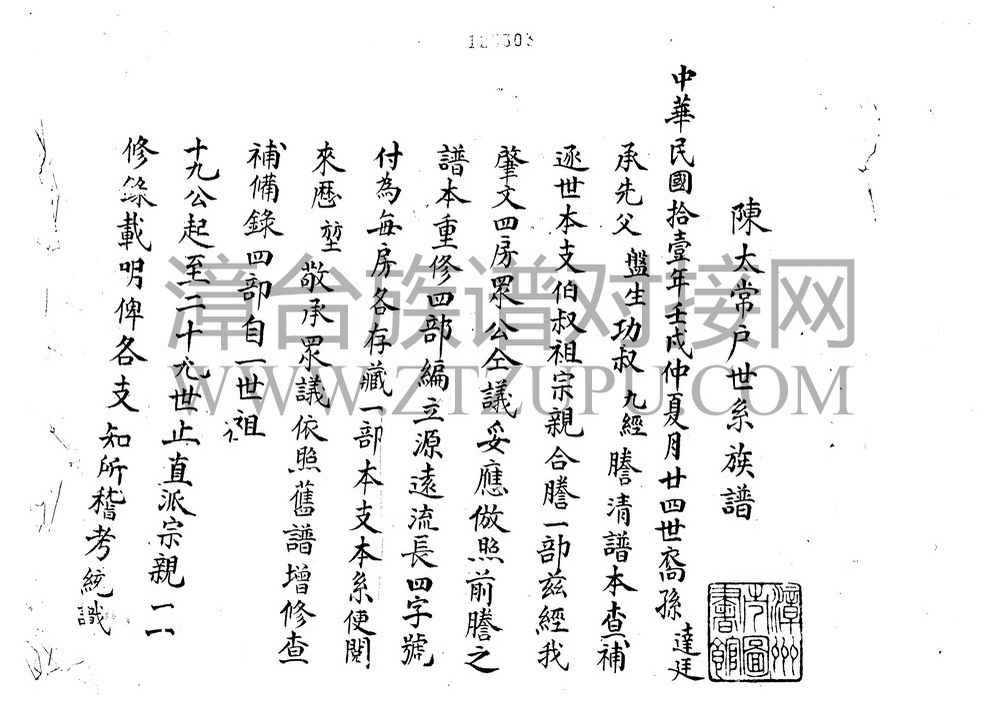 127303
陳太常戶世系族譜
中華民國拾壹年壬戌仲夏月廿四世裔孫達廷
承先父盤生功叔九經謄清譜本查補
逐世本支伯叔祖宗親合謄一部茲經我
肇文四房眾公仝議妥應倣照前謄之
譜本重修四部編立源遠流長四字號
付為每房各存藏一部本支本系便閱
來歷堃敬承眾議依照舊譜增修查
補備錄四部自一世祖
十九公起至二十九世止直派宗親一一
修錄載明俾各支知所稽考統識
漳州市圖書館
漳台族谱对接网
WWW.ZTZUPU.COM